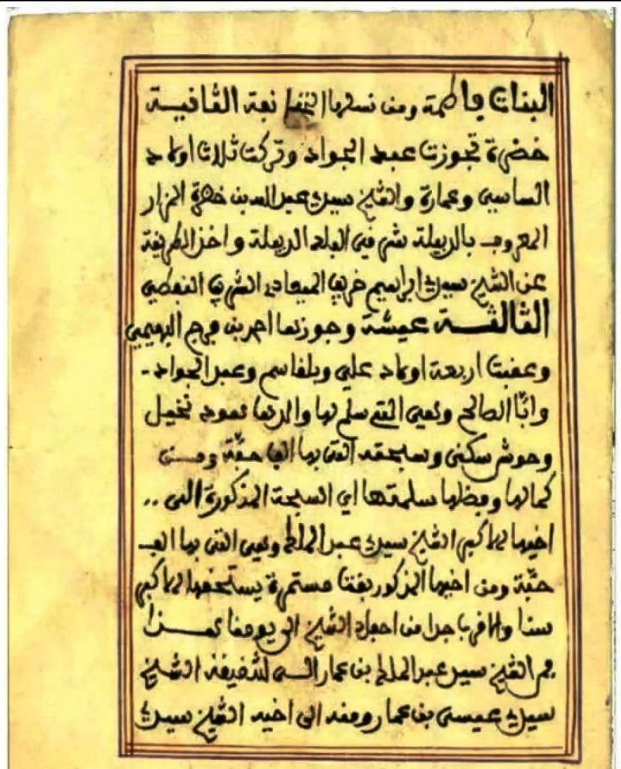 البنات فاطمة ومن نسلها نجعة الثانية
خضرة تجوزت عبد الجواد وتركت ثلاث اولاد
الساسي وعمارة والشيخ سيدي عبد الله بن خضرة المزار
المعروف بالدبيلة شرقي البلد الدبيلة واخذ الطريقة
عن الشيخ سيدي ابراهيم الشريف النفطي
الثالثة عيشة وجوزتها احمد بن فرج
وعقبت اربعة اولاد علي وبلقاسم وعبد الجواد -
وامّا الصالح وهي التي سلم لها والدها نخيل
وحوش سكنى وسبحته التي بها الف حبّة ومن
كمالها وفضلها سلمتها اي السبحة المذكورة الى ..
اخيها الاكبر الشيخ سيدي عبد المالك وهي التي بها الف
حبّة ومن اخيها المذكور بقت مستمرة يستحقها الاكبر
سنا من احفاد الشيخ الى يومنا هذا
فمن الشيخ سيدي عبد المالك بن عمار الى شقيقه الشيخ
سيدي عيسى بن عمار ومنه الى اخيه الشيخ سيدي